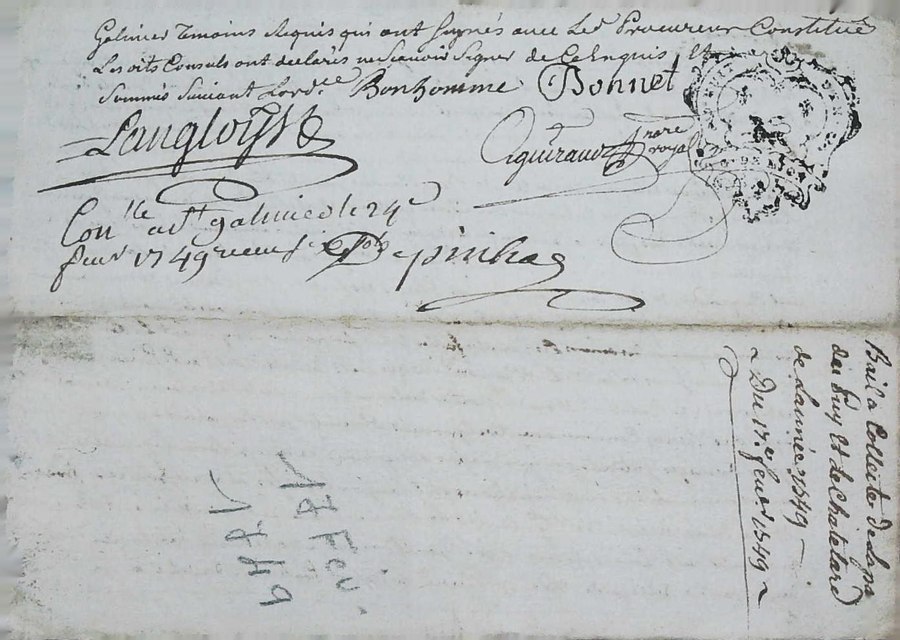 Galmier Temoins Requis qui ont signés avec Led Procureur Constitué
Lesdits Consuls ont declarés ne scavoir signer de ce Enquis et
Sommés Suivant Lord.ce Bonhomme Bonnet
Langlois
Aguiraud nore royal
Con.lle a St galmier le 24e
fevr 1749 recu six sols Depinhac
Bail a Collecte de Lapa
du puy et de Chatelard
de Lannee 1749
Du 17e fevr 1749
17 Fév.
1749